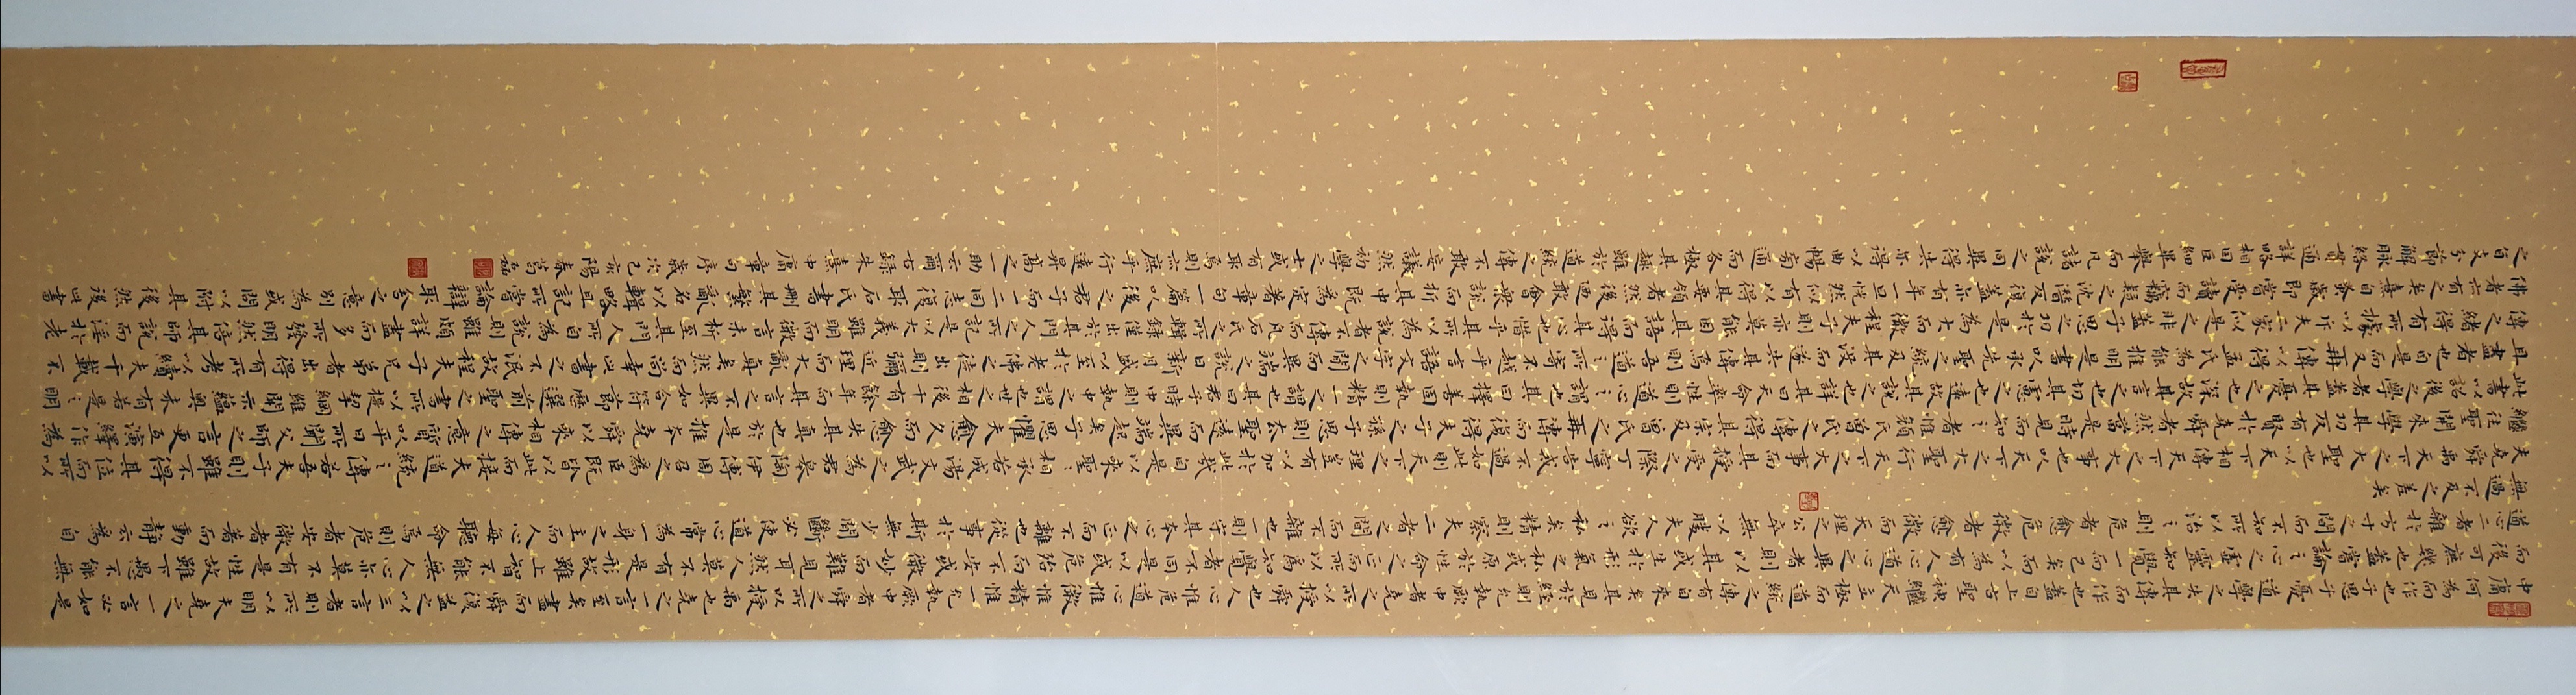 中庸何為而作也子思子憂道學之失其傳而作也蓋自上古聖神繼天立極而道統之傳有自來矣其見於經則允執厥中者堯之所以授舜也人心惟危道心惟微惟精惟一允執厥中者舜之所以授禹也堯之一言至矣盡矣而舜復益之以三言者則所以明夫堯之一言必如是
而後可庶幾也蓋嘗論之心之虛靈知覺一而已矣而以為有人心道心之異者則以其或生於形氣之私或原於性命之正而所以為知覺者不同是以或危殆而不安或微妙而難見耳然人莫不有是形故雖上智不能無人心亦莫不有是性故雖下愚不能無
道心二者雜於方寸之間而不知所以治之則危者愈危微者愈微而天理之公卒無以勝夫人欲之私矣精則察夫二者之間而不雜也一則守其本心之正而不離也從事於斯無少間斷必使道心常為一身之主而人心每聽命焉則危者安微者著而動靜云為自
無過不及之差矣
夫堯舜禹天下之大聖也以天下相傳天下之大事也以天下之大聖行天下之大事而其授受之際丁寧告戒不過如此則天下之理豈有以加於此哉自是以來聖聖相承若成湯文武之為君皋陶伊傅周召之為臣既皆以此而接夫道統之傳若吾夫子則雖不得其位而所以
繼往聖開來學其功反有賢於堯舜者然當是時見而知之者惟顏氏曾氏之傳得其宗及曾氏之再傳而復得夫子之孫子思則去聖遠而異端起矣子思懼夫愈久而愈失其真也於是推本堯舜以來相傳之意質以平日所聞父師之言更互演繹作為
此書以詔後之學者蓋其憂之也深故其言之也切其慮之也遠故其說之也詳其曰天命率性則道心之謂也其曰擇善固執則精一之謂也其曰君子時中則執中之謂也世之相後千有餘年而其言之不異如合符節歷選前聖之書所以提挈綱維開示蘊奧未有若是之明
且盡者也自是而又再傳以得孟氏為能推明是書以承先聖之統及其沒而遂失其傳焉則吾道之所寄不越乎言語文字之間而異端之說日新月盛以至於老佛之徒出則彌近理而大亂真矣然而尚幸此書之不泯故程夫子兄弟者出得有所考以續夫千載不
傳之緒得有所據以斥夫二家似是之非蓋子思之功於是為大而微程夫子則亦莫能因其語而得其心也惜乎其所以為說者不傳而凡石氏之所輯錄僅出於其門人之所記是以大義雖明而微言未析至其門人所自為說則雖頗詳盡而多所發明然倍其師說而淫於老
佛者亦有之矣熹自蚤歲即嘗受讀而竊疑之沈潛反復蓋亦有年一旦恍然似有以得其要領者然後迺敢會眾說而折其中既為定著章句一篇以俟後之君子而一二同志復取石氏書刪其繁亂名以輯略且記所嘗論辯取舍之意別為或問以附其後然後此書
之旨支分節解脈絡貫通詳略相因巨細畢舉而凡諸說之同異得失亦得以曲暢旁通而各極其趣雖於道統之傳不敢妄議然初學之士或有取焉則亦庶乎行遠昇高之一助云爾右錄朱熹中庸章句序歲次己亥陽春葛磊